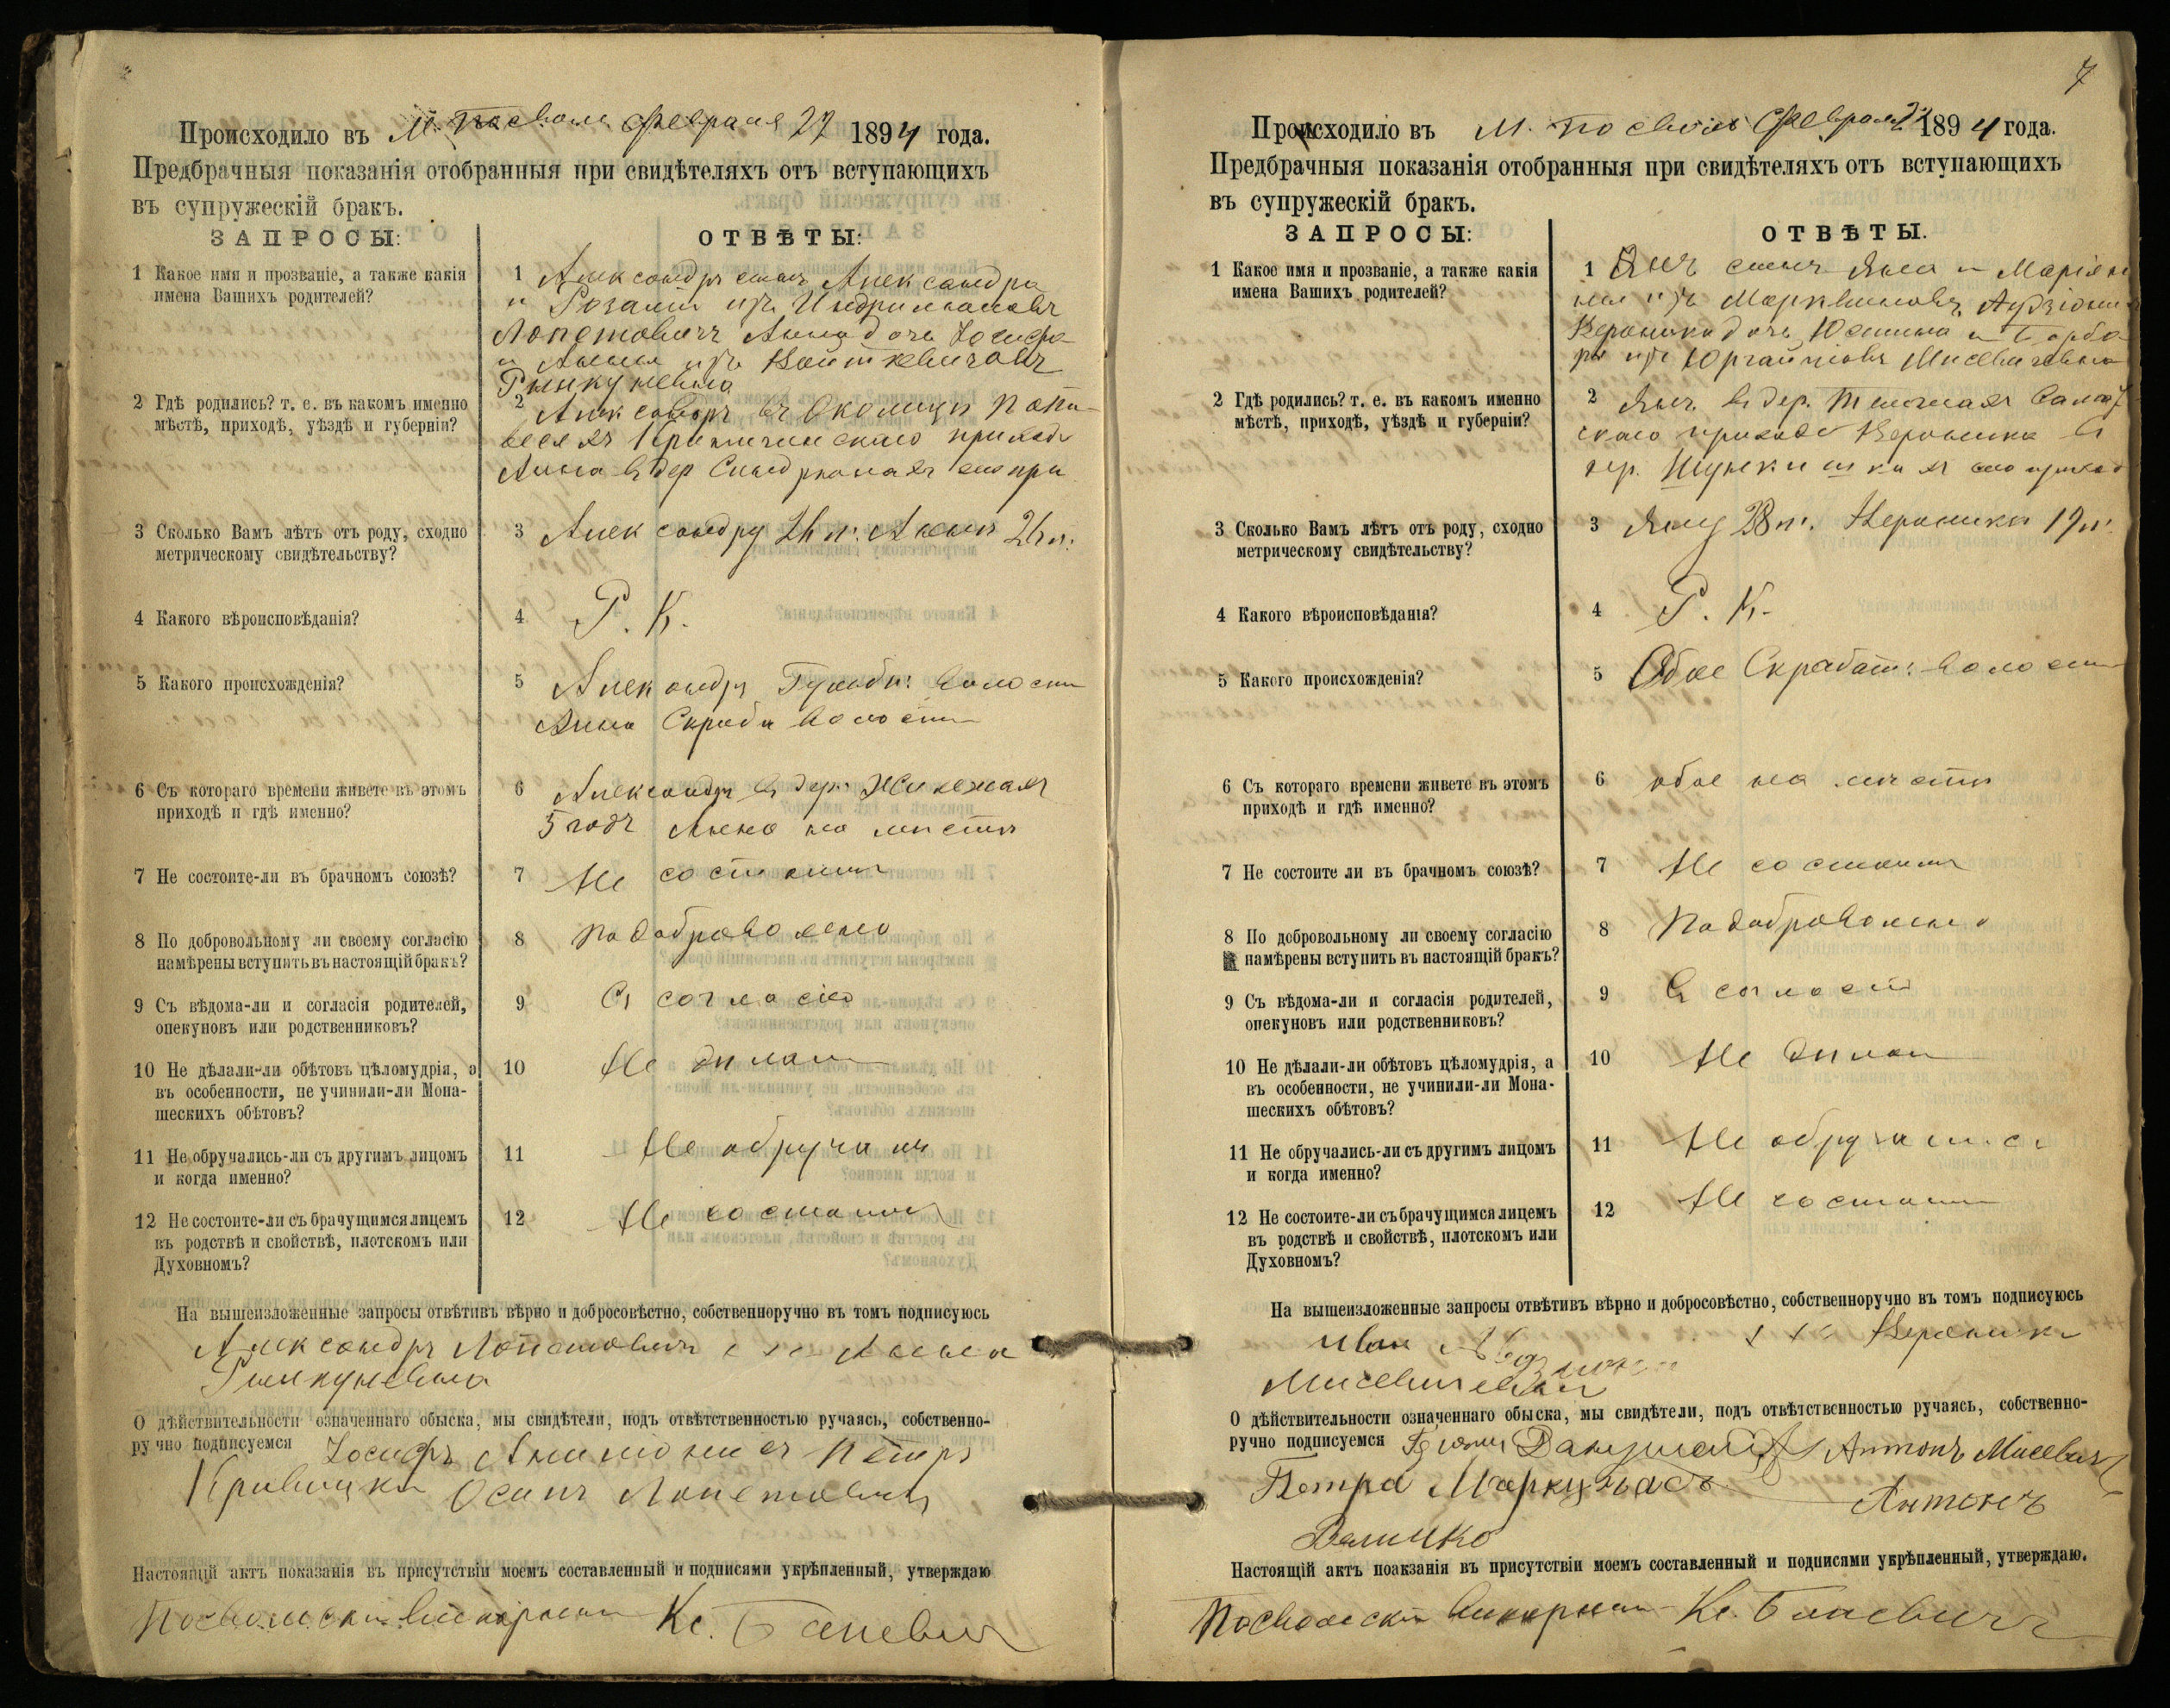 Происходило въ М. Посволи Февраля 27 1894 года.
Предбрачныя показанія отобранныя при свидѣтеляхъ отъ вступающихъ
въ супружескій бракъ.
ЗАПРОСЫ: ОТВѢТЫ:
1 Какое имя и прозваніе, а также какія
имена Вашихъ родителей?
1 Александръ сынъ Александра
и Розаліи изъ
Лопетовичъ Анна дочь Іосифа
и Анны изъ Войткевичовъ
Рынкуневна
2 Гдѣ родились? т. е. въ какомъ именно
мѣстѣ, приходѣ, уѣздѣ и губерніи?
2 Александръ въ Околицѣ
прихода
Анна въ дер сего при
3 Сколько Вамъ лѣтъ отъ роду, сходно
метрическому свидѣтельству?
3 Александру 24 л. Аннѣ 24 л.
4 Какого вѣроисповѣданія?
4 Р. К.
5 Какого происхожденія?
5 Александръ волости
Анна Скраба волости
6 Съ котораго времени живете въ этомъ
приходѣ и гдѣ именно?
6 Александръ въ дер.
5 годъ Анна на мѣстѣ
7 Не состоите-ли въ брачномъ союзѣ?
7 Не состоимъ
8 По добровольному ли своему согласію
намѣрены вступить въ настоящій бракъ?
8 По добровольно
9 Съ вѣдома-ли и согласія родителей,
опекуновъ или родственниковъ?
9 Съ согласія
10 Не дѣлали-ли обѣтовъ цѣломудрія, а
въ особенности, не учинили-ли Мона-
шескихъ обѣтовъ?
10 Не дѣлали
11 Не обручались-ли съ другимъ лицомъ
и когда именно?
11 Не обручали
12 Не состоите-ли съ брачущимся лицемъ
въ родствѣ и свойствѣ, плотскомъ или
Духовномъ?
12 Не состоимъ
На вышеизложенные запросы отвѣтивъ вѣрно и добросовѣстно, собственноручно въ томъ подписуюсь
Александръ Лопетовичъ Анна
Рынкуневна
О дѣйствительности означеннаго обыска, мы свидѣтели, подъ отвѣтственностью ручаясь, собственно-
ручно подписуемся Іосифъ Петръ
Кривицки Осипъ Лопетовичъ
Настоящій актъ показанія въ присутствіи моемъ составленный и подписями укрѣпленный, утверждаю
Посвольскій Викарный Кс.
7
Происходило въ М. Посволь Февраля 1894 года.
Предбрачныя показанія отобранныя при свидѣтеляхъ отъ вступающихъ
въ супружескій бракъ.
ЗАПРОСЫ: ОТВѢТЫ.
1 Какое имя и прозваніе, а также какія
имена Вашихъ родителей?
1 Янъ сынъ Яна и Маріян
ны изъ
Вероника дочь Юстина и Барба
ры изъ Мисевичевна
2 Гдѣ родились? т. е. въ какомъ именно
мѣстѣ, приходѣ, уѣздѣ и губерніи?
2 Янъ въ дер.
скаго прихода Вероника въ
дер. сего приход
3 Сколько Вамъ лѣтъ отъ роду, сходно
метрическому свидѣтельству?
3 Яну 28 л. Вероники 19 л.
4 Какого вѣроисповѣданія?
4 Р. К.
5 Какого происхожденія?
5 Обое Скрабат. волости
6 Съ котораго времени живете въ этомъ
приходѣ и гдѣ именно?
6 обое на мѣстѣ
7 Не состоите ли въ брачномъ союзѣ?
7 Не состоимъ
8 По добровольному ли своему согласію
намѣрены вступить въ настоящій бракъ?
8 По добровольно
9 Съ вѣдома-ли и согласія родителей,
опекуновъ или родственниковъ?
9 Съ согласія
10 Не дѣлали-ли обѣтовъ цѣломудрія, а
въ особенности, не учинили-ли Мона-
шескихъ обѣтовъ?
10 Не дѣлали
11 Не обручались-ли съ другимъ лицомъ
и когда именно?
11 Не обручались
12 Не состоите-ли съ брачущимся лицемъ
въ родствѣ и свойствѣ, плотскомъ или
Духовномъ?
12 Не состоимъ
На вышеизложенные запросы отвѣтивъ вѣрно и добросовѣстно, собственноручно въ томъ подписуюсь
Иван Вероника
Мисевичевна
О дѣйствительности означеннаго обыска, мы свидѣтели, подъ отвѣтственностью ручаясь, собственно-
ручно подписуемся Антонъ Мисевич
Петра Маркунасъ Антонъ
Величко
Настоящій актъ поакзанія въ присутствіи моемъ составленный и подписями укрѣпленный, утверждаю.
Посвольскій Викарный Кс.